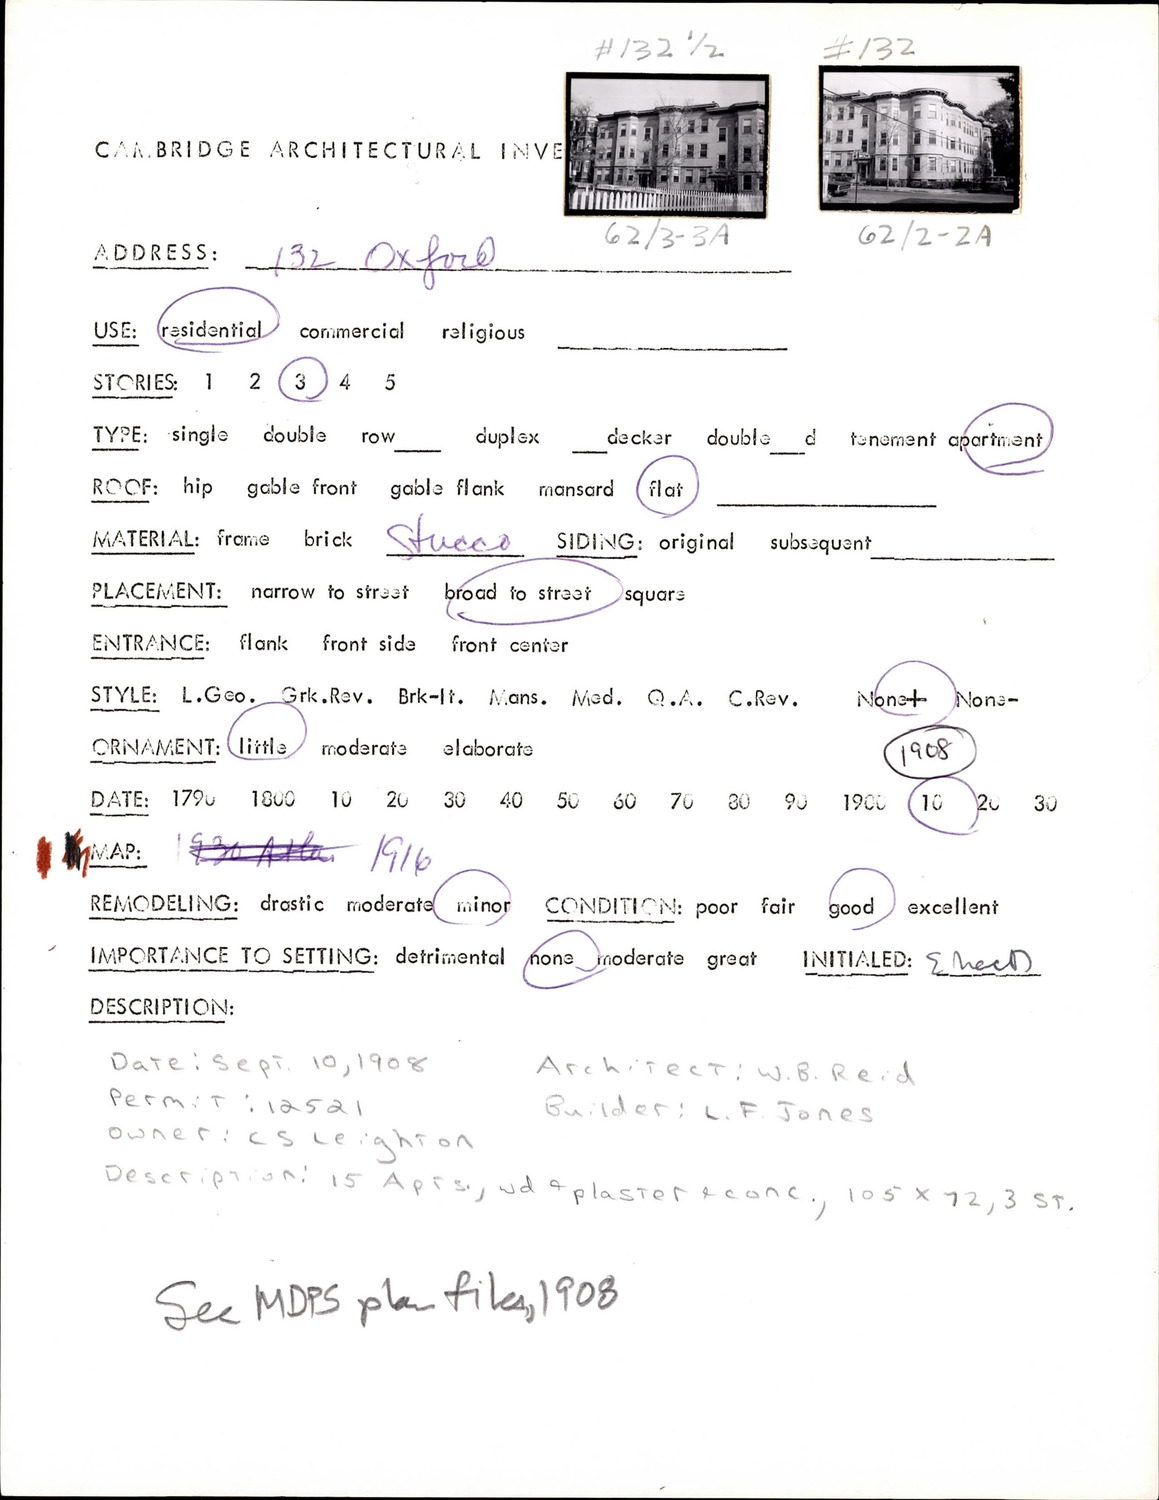 #132 1/2 #132
CAMBRIDGE ARCHITECTURAL INVE
62/3-3A 62/2-2A
ADDRESS: 132 Oxford
USE: residential commercial religious
STORIES: 1 2 3 4 5
TYPE: single double row___ duplex ___decker double___d tenement apartment
ROOF: hip gable front gable flank mansard flat
MATERIAL: frame brick Stucco SIDING: original subsequent
PLACEMENT: narrow to street broad to street square
ENTRANCE: flank front side front center
STYLE: L.Geo. Grk.Rev. Brk-It. Mans. Med. Q.A. C.Rev. None+ None-
ORNAMENT: little moderate elaborate 1908
DATE: 1790 1800 10 20 30 40 50 60 70 80 90 1900 10 20 30
MAP: 1930 Atlas 1916
REMODELING: drastic moderate minor CONDITION: poor fair good excellent
IMPORTANCE TO SETTING: detrimental none moderate great INITIALED:
DESCRIPTION:
Date: Sept. 10, 1908 Architect: W.B. Reid
Permit: 12521 Builder: L.F. Jones
Owner: CS Leighton
Description: 15 Apts., wd + plaster + conc., 105 x 72, 3 ST.
See MDPS plan files, 1908